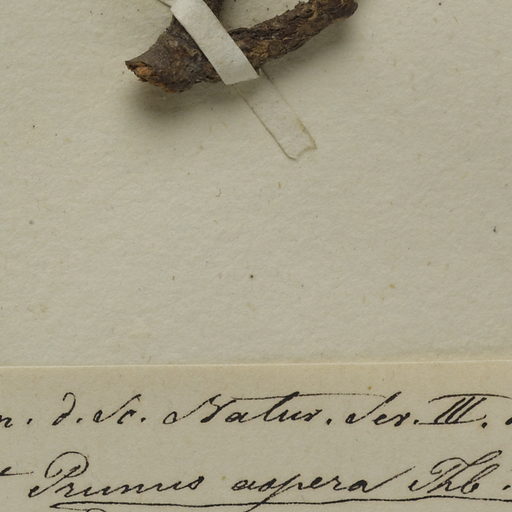 n. d. Sc. Natur. Ser. III.
Prunus aspera Thb.